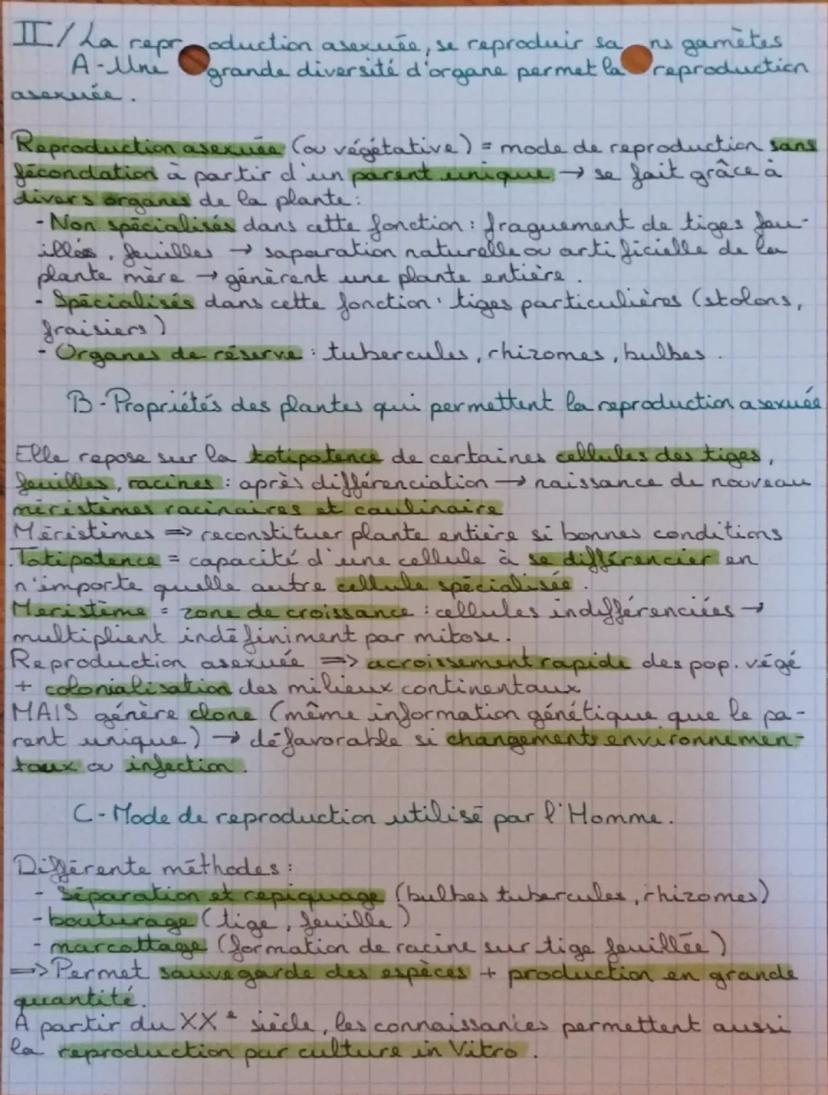 II/ La reproduction asexuée, se reproduir sans gamètes
A-Une grande diversité d'organe permet la reproduction
asexuée.
Reproduction asexuée (ou végétative) = mode de reproduction sans
fécondation à partir d'un parent unique → se fait grâce à
divers organes de la plante:
- Non spécialisés dans cette fonction: fraguement de tiges feu-
illés, feuilles → saparation naturelle ou artificielle de la
plante mère → génèrent une plante entière.
- Spécialisés dans cette fonction: tiges particulières (stolons,
fraisiers)
- Organes de réserve: tubercules, rhizomes, bulbes.
B-Propriétés des plantes qui permettent la reproduction asexuée
Elle repose sur la totipotence de certaines cellules des tiges,
feuilles, racines: après différenciation → naissance de nouveau
méristèmes racinaires et caulinaire
Méristèmes => reconstituer plante entière si bonnes conditions
.Totipotence = capacité d'une cellule à se différencier en
n'importe quelle autre cellule spécialisée.
Meristème = zone de croissance: cellules indifférenciées →
multiplient indéfiniment par mitose.
Reproduction asexuée => acroissement rapide des pop. végé
+ colonialisation des milieux continentaux
MAIS génère clone (même information génétique que le pa-
rent unique) → défavorable si changements environnemen-
taux ou infection.
C-Mode de reproduction utilisé par l'Homme.
Différente méthodes:
- Séparation et repiquage (bulbes tubercules, rhizomes)
- bouturage (tige, feuille)
- marcottage (formation de racine sur tige feuillée)
=> Permet sauvegarde des espèces + production en grande
quantité.
À partir du XXe siècle, les connaissances permettent aussi
la reproduction par culture in Vitro.